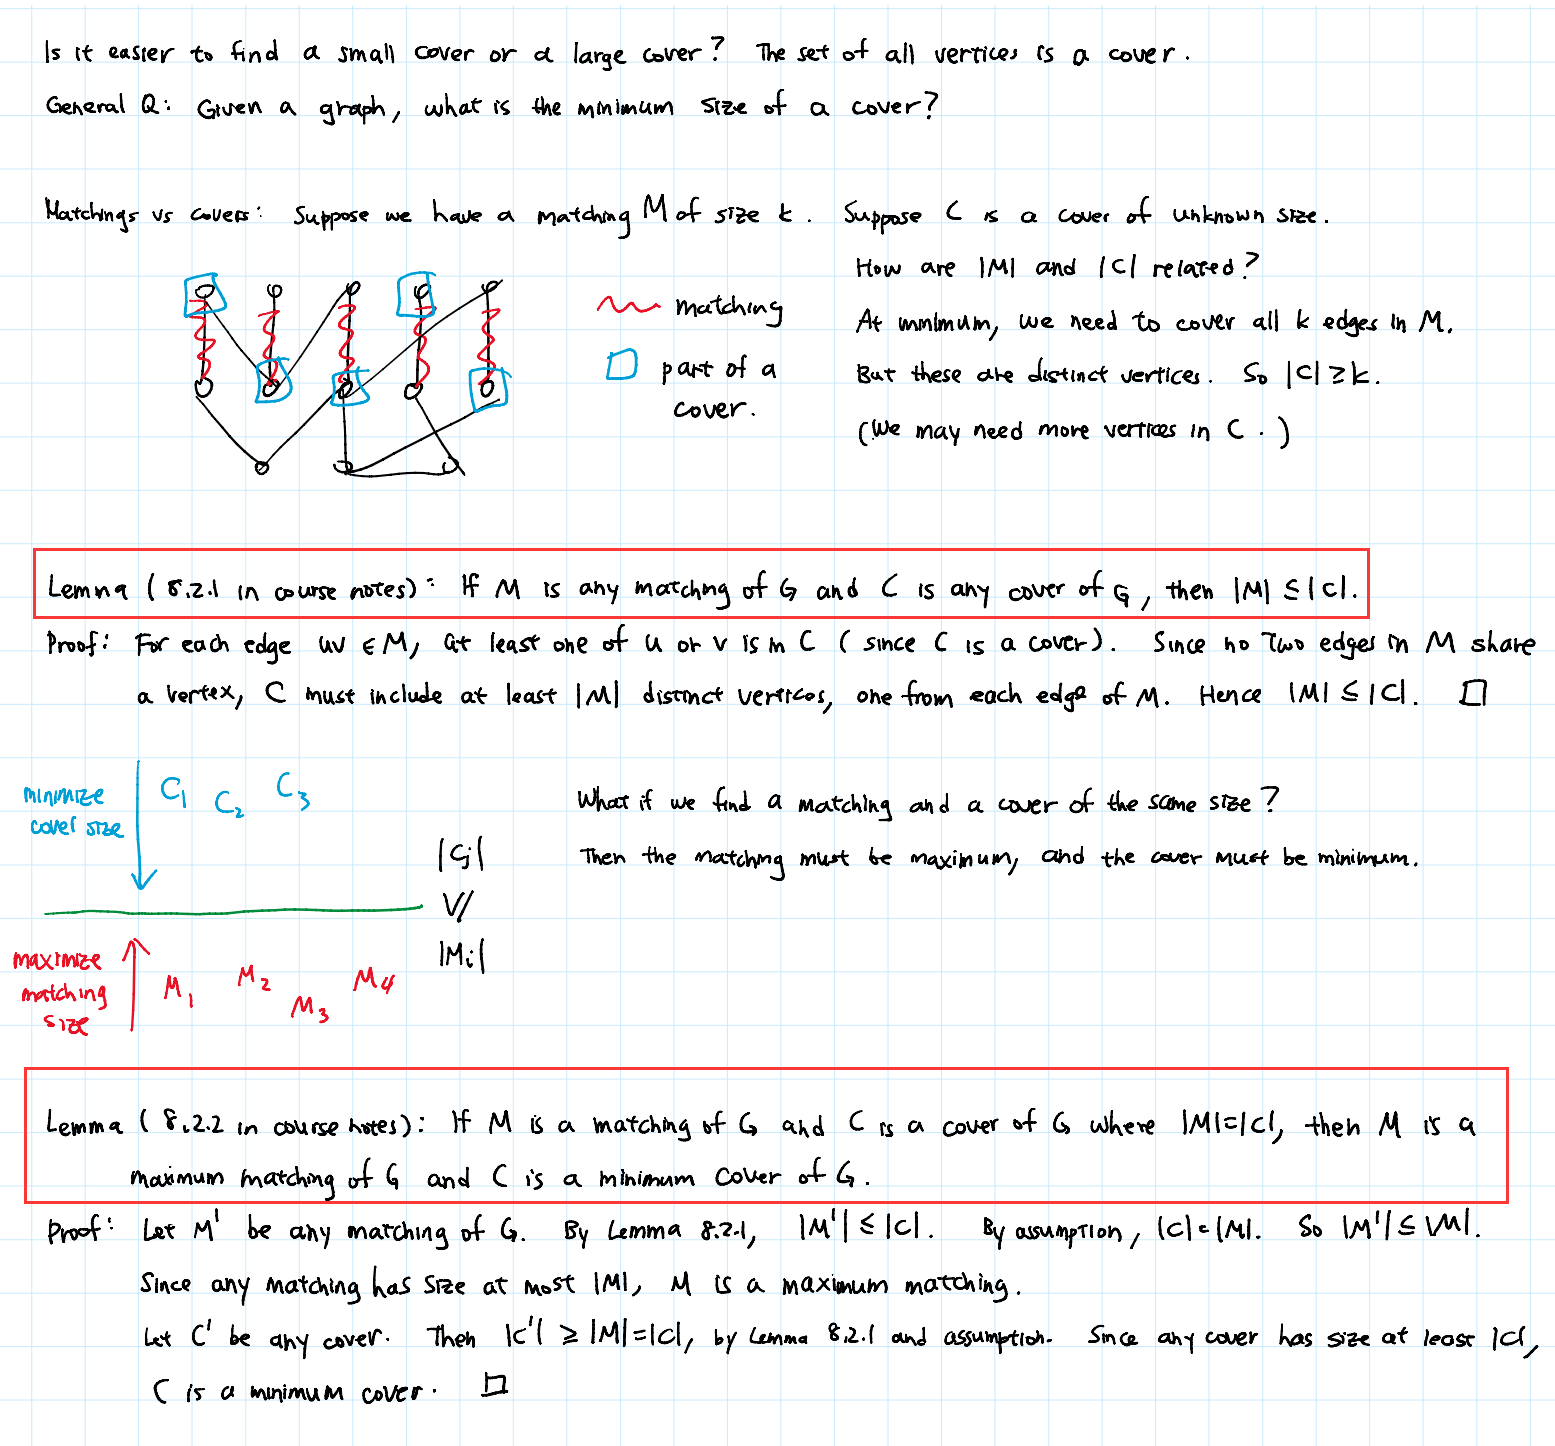 Is it easier to find a small cover or a large cover? The set of all vertices is a cover.
General Q: Given a graph, what is the minimum size of a cover?
Matchings vs covers: Suppose we have a matching M of size k. Suppose C is a cover of unknown size.
How are |M| and |C| related?
matching
At minimum, we need to cover all k edges in M.
part of a
cover.
But these are distinct vertices. So |C| ≥ k.
(We may need more vertices in C.)
Lemma (8.2.1 in course notes): If M is any matching of G and C is any cover of G, then |M| ≤ |C|.
Proof: For each edge uv ∈ M, at least one of u or v is in C (since C is a cover). Since no two edges in M share
a vertex, C must include at least |M| distinct vertices, one from each edge of M. Hence |M| ≤ |C|. □
minimize
cover size
C₁ C₂ C₃
What if we find a matching and a cover of the same size?
Then the matching must be maximum, and the cover must be minimum.
|Cⱼ|
V//
|Mᵢ|
maximize
matching
size
M₁ M₂ M₃ M₄
Lemma (8.2.2 in course notes): If M is a matching of G and C is a cover of G where |M|=|C|, then M is a
maximum matching of G and C is a minimum cover of G.
Proof: Let M' be any matching of G. By Lemma 8.2.1, |M'| ≤ |C|. By assumption, |C|=|M|. So |M'| ≤ |M|.
Since any matching has size at most |M|, M is a maximum matching.
Let C' be any cover. Then |C'| ≥ |M|=|C|, by Lemma 8.2.1 and assumption. Since any cover has size at least |C|,
C is a minimum cover. □